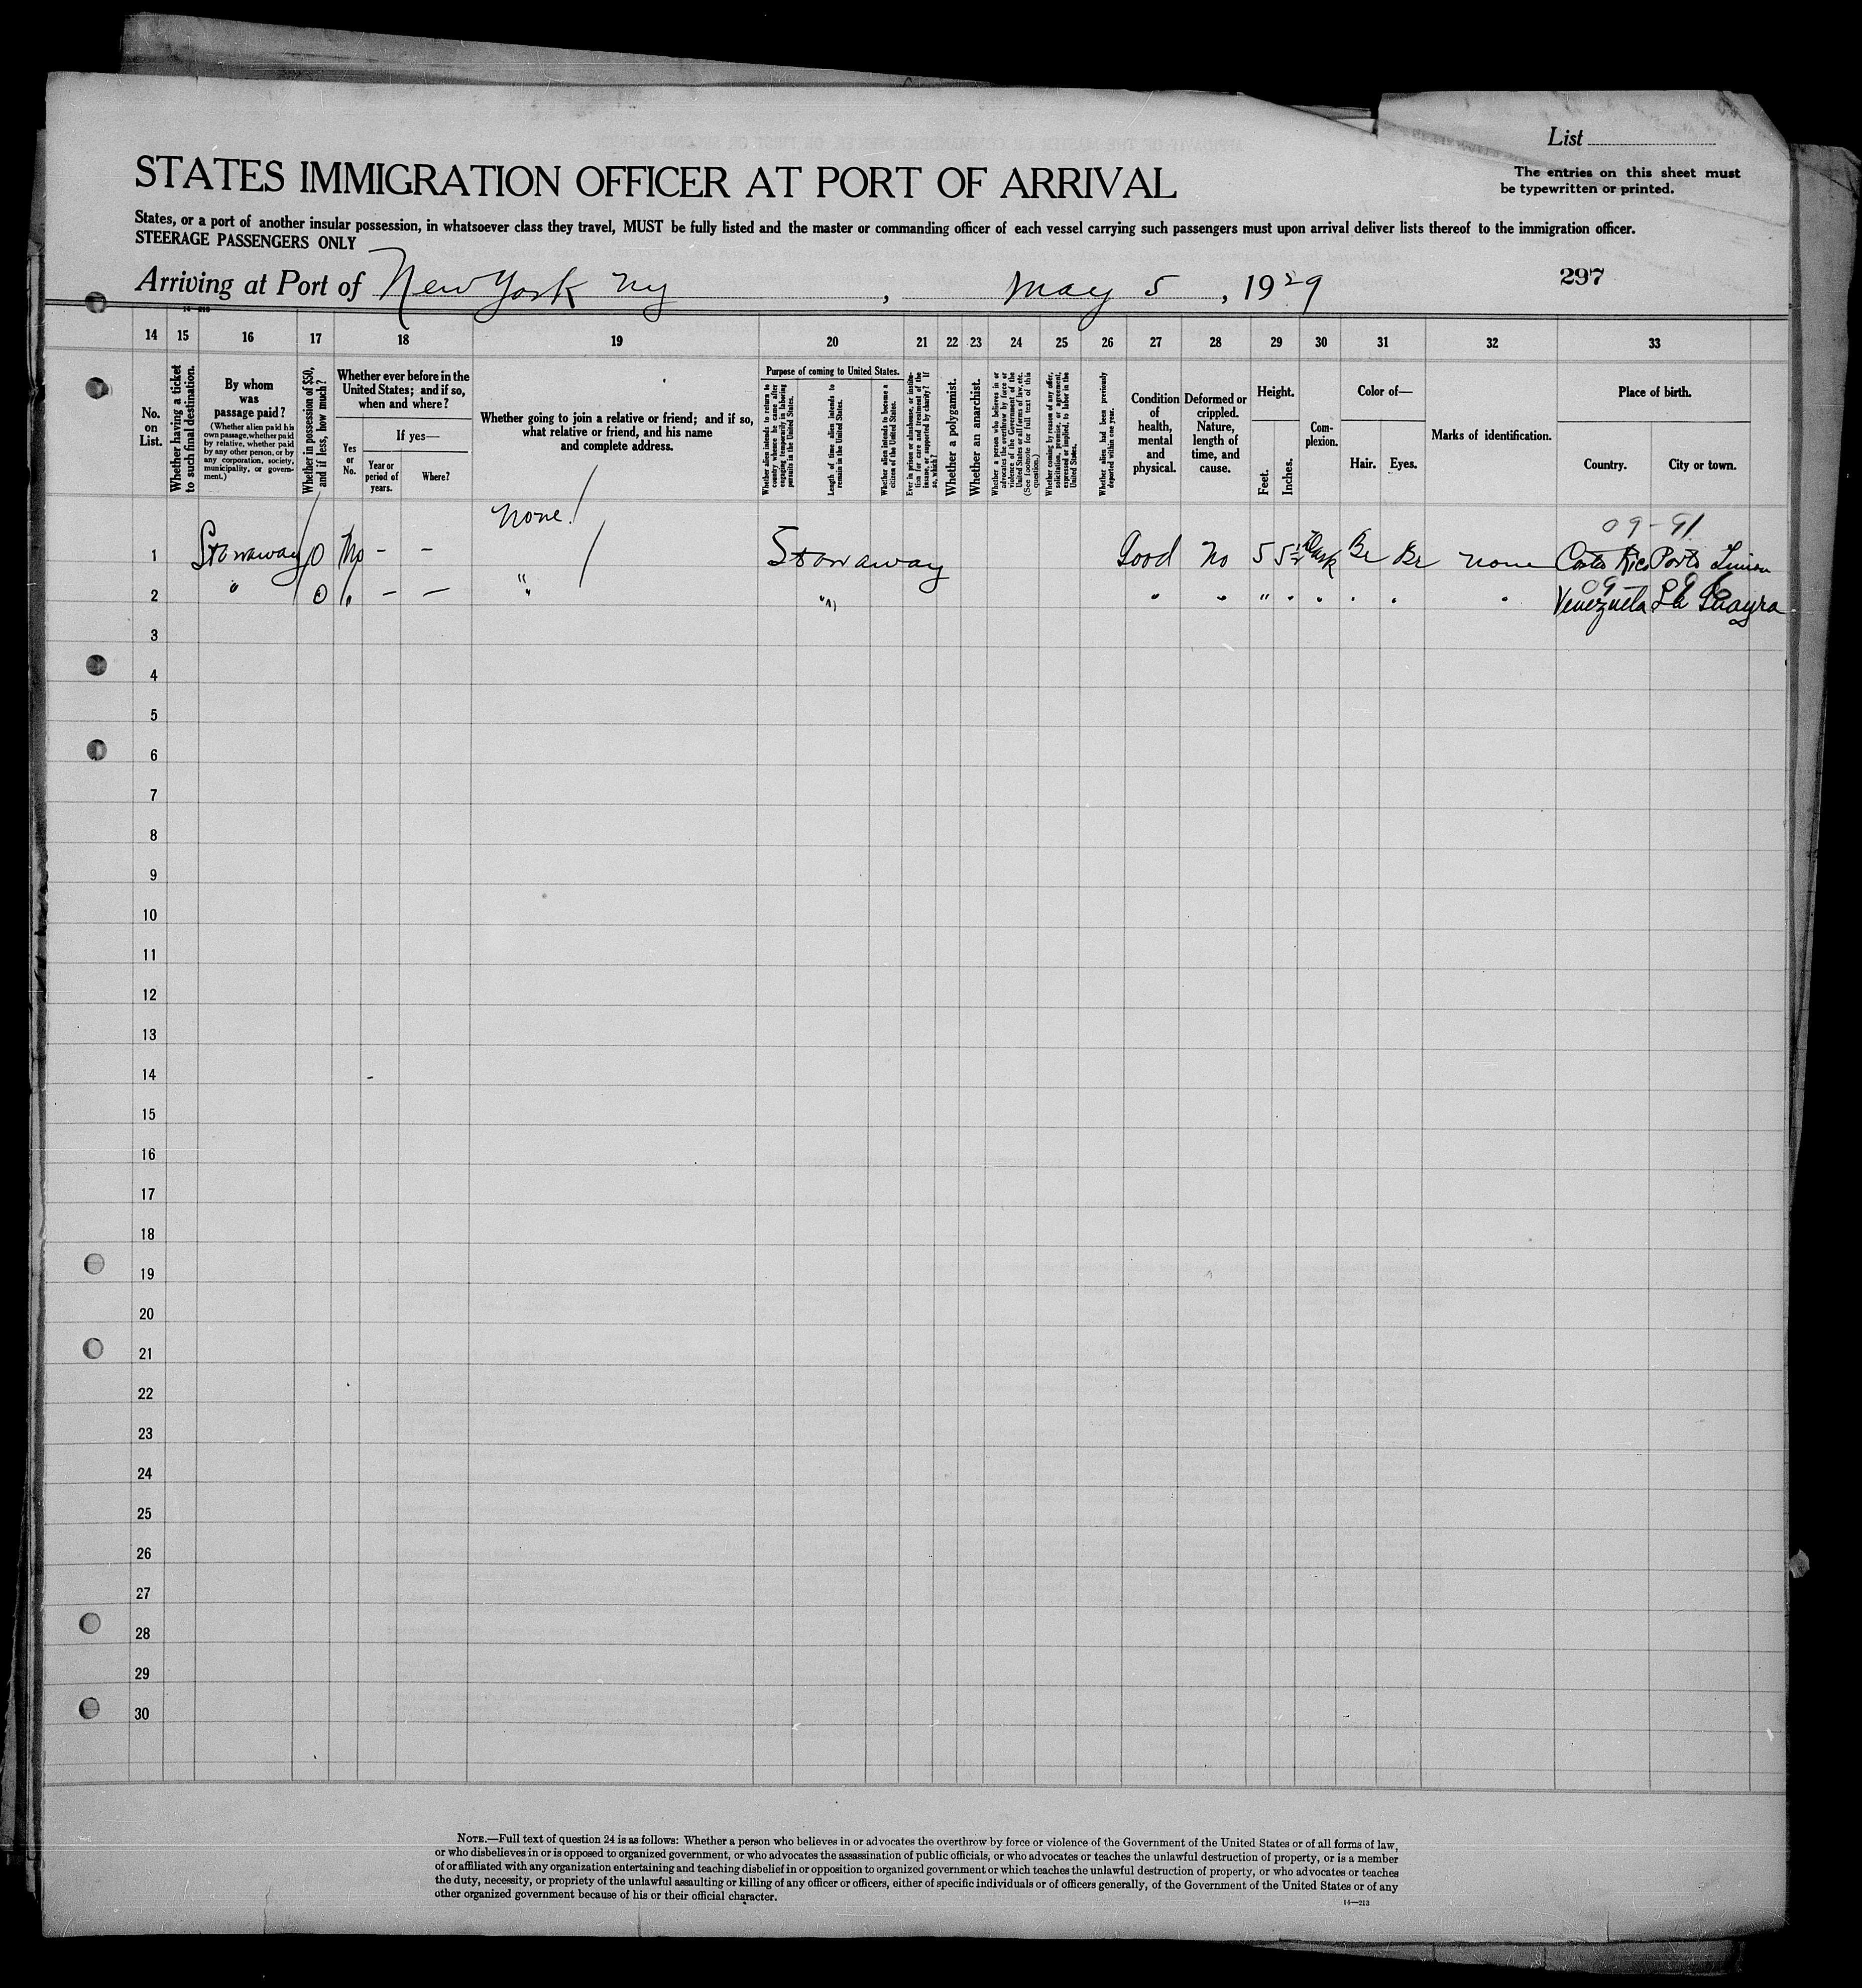 List
The entries on this sheet must
be typewritten or printed.
STATES IMMIGRATION OFFICER AT PORT OF ARRIVAL
States, or a port of another insular possession, in whatsoever class they travel, MUST be fully listed and the master or commanding officer of each vessel carrying such passengers must upon arrival deliver lists thereof to the immigration officer.
STEERAGE PASSENGERS ONLY
Arriving at Port of New York NY, May 5, 1929
297
14 15 16 17 18 19 20 21 22 23 24 25 26 27 28 29 30 31 32 33
No. on List.
Whether having a ticket to such final destination.
By whom was passage paid?
(Whether alien paid his own passage, whether paid by relative, whether paid by any other person, or by any corporation, society, municipality, or government.)
Whether in possession of $50, and if less, how much?
Whether ever before in the United States; and if so, when and where?
Yes or No.
If yes—
Year or period of years.
Where?
Whether going to join a relative or friend; and if so, what relative or friend, and his name and complete address.
Purpose of coming to United States.
Whether alien intends to return to country whence he came after engaging temporarily in laboring pursuits in the United States.
Length of time alien intends to remain in the United States.
Whether alien intends to become a citizen of the United States.
Ever in prison or almshouse, or institution for care and treatment of the insane, or supported by charity? If so, which?
Whether a polygamist.
Whether an anarchist.
Whether a person who believes in or advocates the overthrow by force or violence of the Government of the United States or all forms of law, etc. (See footnote for full text of this question.)
Whether coming by reason of any offer, solicitation, promise, or agreement, expressed or implied, to labor in the United States.
Whether alien had been previously deported within one year.
Condition of health, mental and physical.
Deformed or crippled. Nature, length of time, and cause.
Height.
Feet.
Inches.
Complexion.
Color of—
Hair.
Eyes.
Marks of identification.
Place of birth.
Country.
City or town.
none!
09-91
1 Stowaway 0 No - - Stowaway Good No 5 5½ Dark Br Br none Costa Rica Porto Limon
2 " 0 " - - " " " " " " " " " " Venezuela La Guayra
3
4
5
6
7
8
9
10
11
12
13
14
15
16
17
18
19
20
21
22
23
24
25
26
27
28
29
30
NOTE.—Full text of question 24 is as follows: Whether a person who believes in or advocates the overthrow by force or violence of the Government of the United States or of all forms of law,
or who disbelieves in or is opposed to organized government, or who advocates the assassination of public officials, or who advocates or teaches the unlawful destruction of property, or is a member
of or affiliated with any organization entertaining and teaching disbelief in or opposition to organized government or which teaches the unlawful destruction of property, or who advocates or teaches
the duty, necessity, or propriety of the unlawful assaulting or killing of any officer or officers, either of specific individuals or of officers generally, of the Government of the United States or of any
other organized government because of his or their official character.
14—213